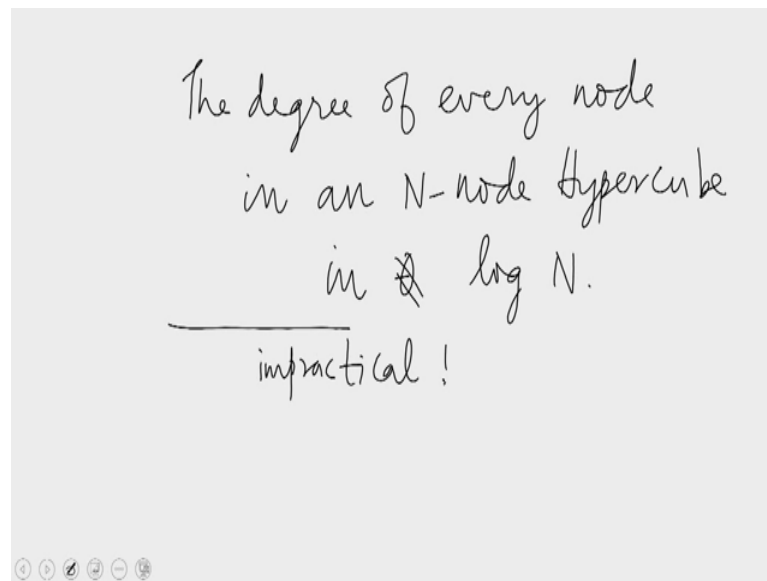 The degree of every node
in an N-node Hypercube
in log N.
impractical !